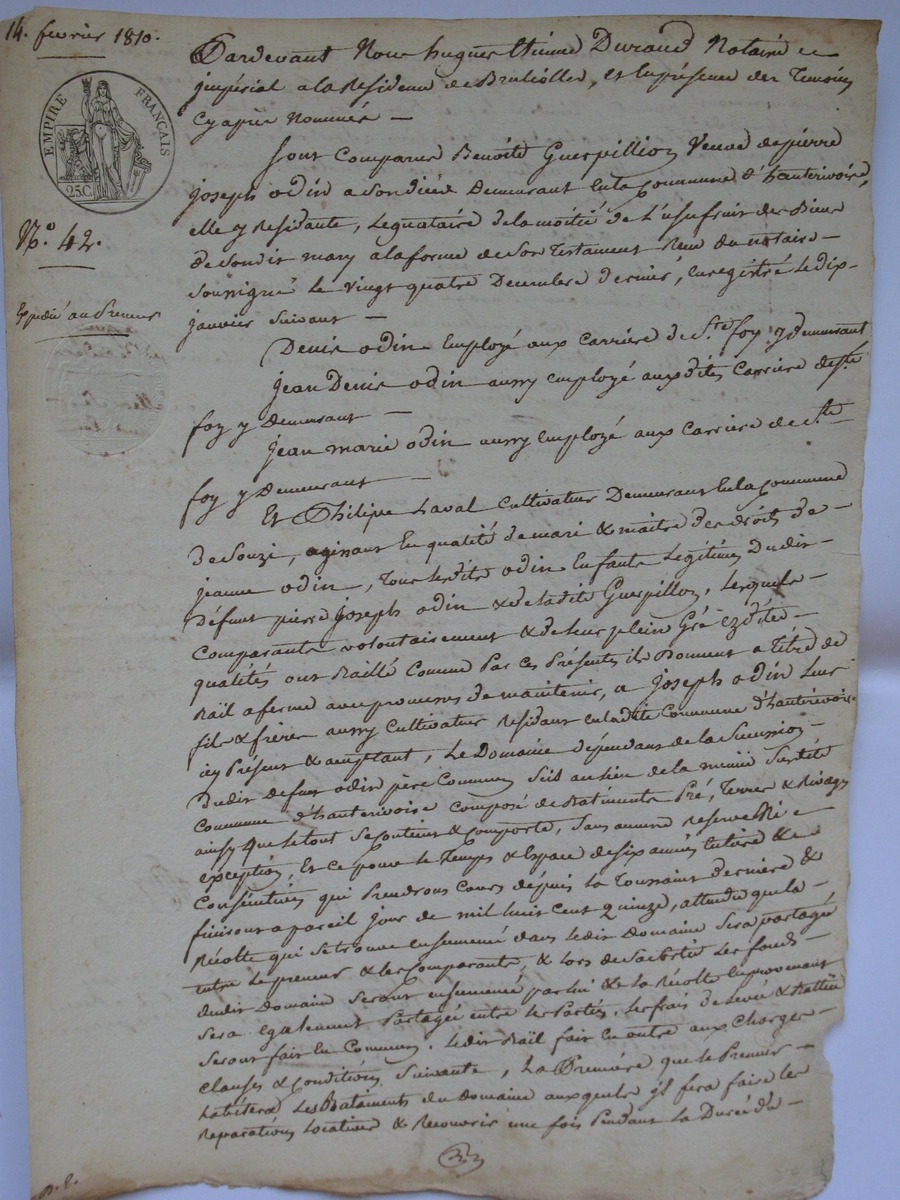 14. fevrier 1810.
EMPIRE FRANÇAIS
25C.
N.º 42.
Expédié au Preneur
Pardevant Nous hugues Etienne Durand Notaire
impérial a la Residence de Brulioller, et En présence des Temoins
Cy apres Nommés —
Sont Comparus Benoite Guerpillion Veuve de pierre
joseph odin a Son décéd Demeurant En la Commune d'hauterivoire,
elle y Residante, Legnataire de la moitié de L'usufruit des Biens
de Son dit mary a la forme de Son Testament Recu du notaire —
Soussigné le vingt quatre Decembre dernier, Enregistré le dix —
janvier Suivant —
Denis odin Employé aux Carriere de S.te foy y demeurant
jean Denis odin aussy employé aux dites Carriere de S.te
foy y Demeurant —
jean marie odin aussy Employé aux Carriere de S.te
foy y Demeurant —
Et Philipe Laval Cultivateur Demeurant En la Commune
de Souzi, agissant En qualité de mari & maitre des droits de —
jeanne odin, Tous Lesdits odin Enfants Legitimes Dudit —
Défunt pierre joseph odin & de ladite Guerpillon, Lesquels —
Comparants volontairement & de leur plein Gré Ezdites —
qualités ont Baillé Comme Par Ces Présentes ils Donnent a Titre de
Bail a ferme avec promesses de maintenir, a joseph odin Leur
fils & frère aussy Cultivateur Residant en ladite Commune d'hauterivoire
icy Présent & acceptant, Le Domaine dépendant de la Succession —
Dudit Defunt odin père Commun Sis au lieu de la
Commune d'hauterivoire Composé de Batiments Pré, Terres & Rivages
ainsy que le tout Se Contient & Comporte, Sans aucune Reserve Ni —
exception, Et ce pour le Temps & Espace de Six années Entiere &
Conséutives qui Prendrons Cours depuis la Toussaint derniere &
finiront a pareil jour de mil huit Cent quinze, attendu que la —
Récolte qui Se trouve ensemencé dans Ledit Domaine Sera partagée
entre Le preneur & les Comparants, & lors de Sa Sortie Les fonds —
dudit Domaine Seront ensemencé par lui & la Récolte En provenant
Sera également Partagée entre les Parties, Les frais de Levée & Battue
Seront fait En Commun. Ledit Bail fait En outre aux Charges —
clauses & Conditions Suivante, La Premiere que le Preneur —
habitera Les Batiments du Domaine auxquels il fera faire les
Reparations Locatives & Recouvrir une fois Pendant la Durée du —